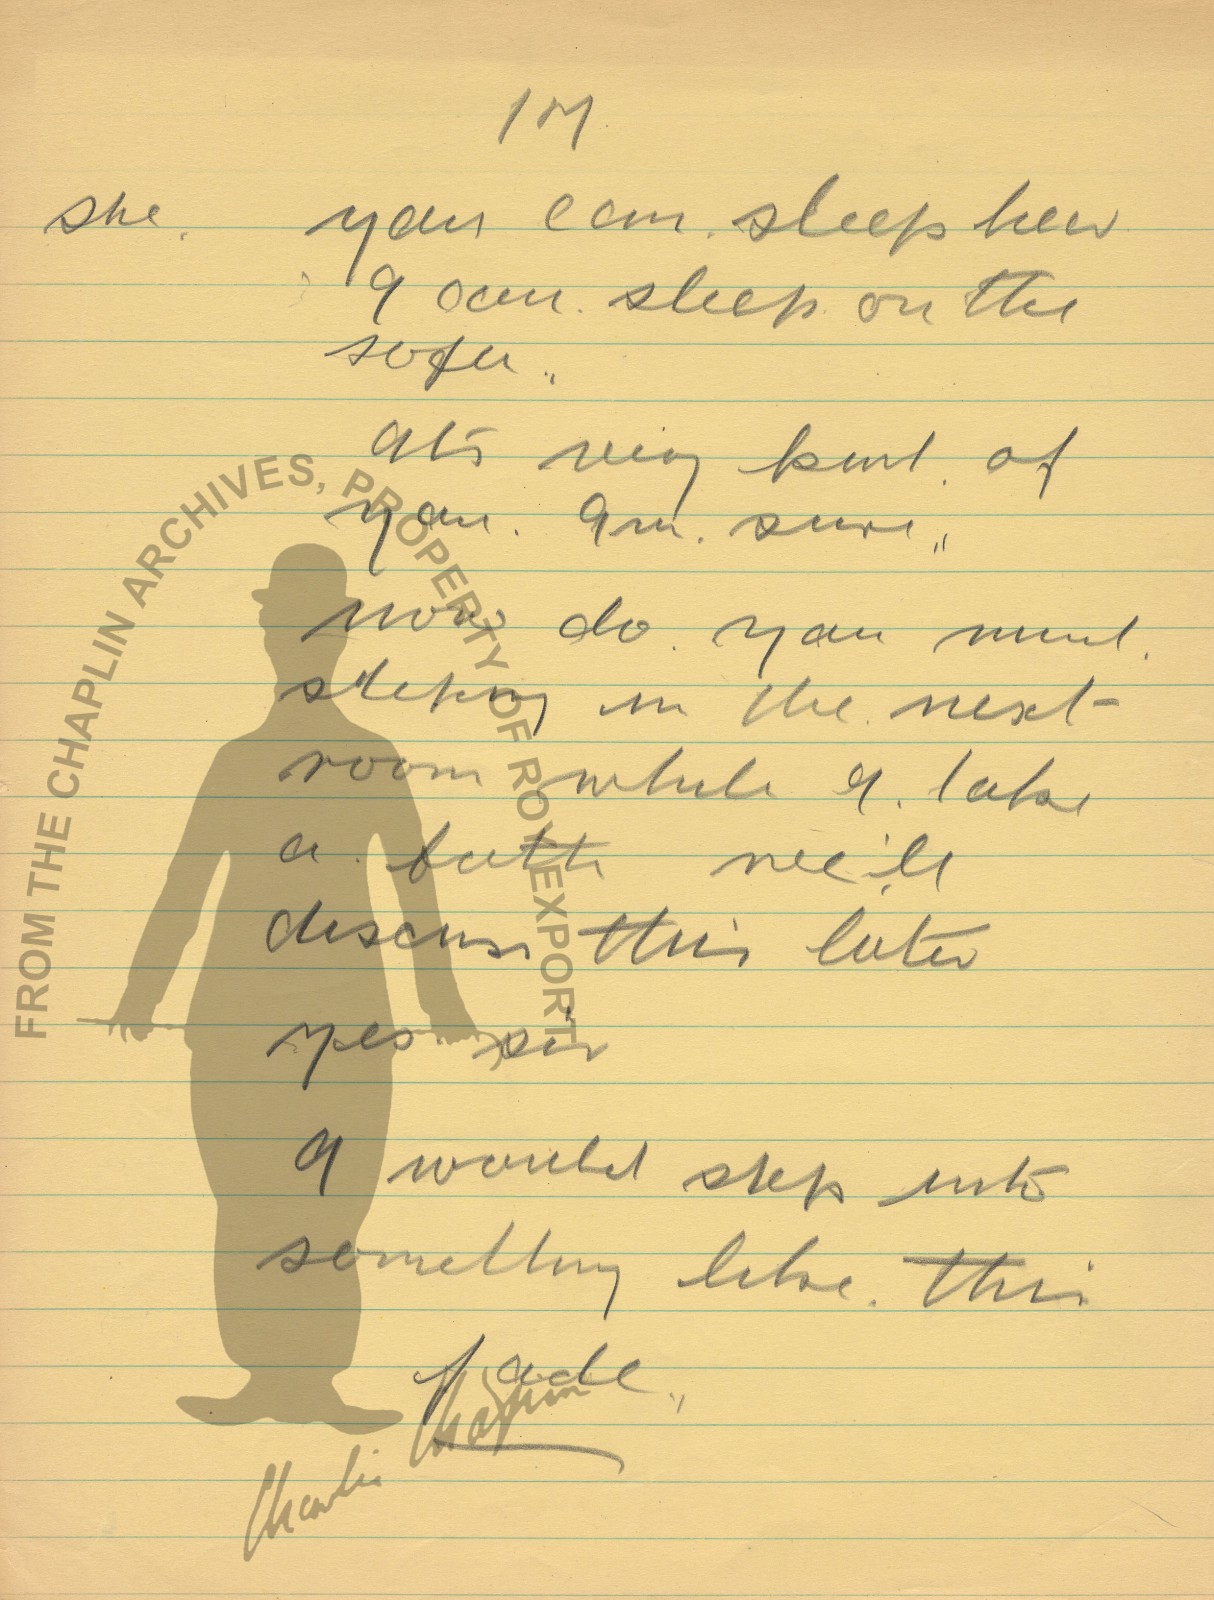 1M
she. you can. sleep here
I can. sleep on the
sofa"
It's very kind. of
you. I'm. sure"
now do. you mind.
steping in the next
room while I. take
a. bath we'll
discuss this later
yes sir
I would step into
something like. this
fade"
FROM THE CHAPLIN ARCHIVES, PROPERTY OF ROY EXPORT
Charlie Chaplin